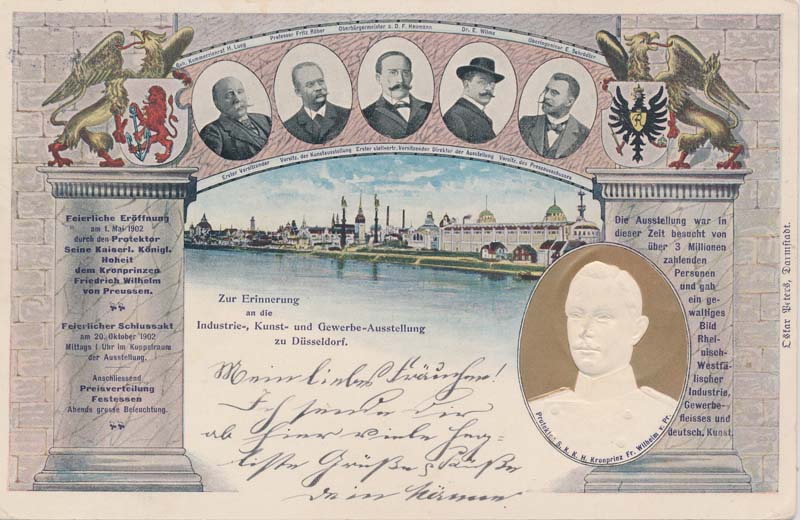 Geh. Kommerzienrat H. Lueg
Professor Fritz Röber
Oberbürgermeister a. D. F. Haumann
Dr. E. Wilms
Oberingenieur E. Schrödter
Erster Vorsitzender
Vorsitz. der Kunstausstellung
Erster stellvertr. Vorsitzender
Direktor der Ausstellung
Vorsitz. des Presseausschusses
Feierliche Eröffnung
am 1. Mai 1902
durch den Protektor
Seine Kaiserl. Königl.
Hoheit
dem Kronprinzen
Friedrich Wilhelm
von Preussen.
Feierlicher Schlussakt
am 20. Oktober 1902
Mittags 1 Uhr im Kuppelraum
der Ausstellung.
Anschliessend
Preisverteilung
Festessen
Abends grosse Beleuchtung.
Zur Erinnerung
an die
Industrie-, Kunst- und Gewerbe-Ausstellung
zu Düsseldorf.
Die Ausstellung war in
dieser Zeit besucht von
über 3 Millionen
zahlenden
Personen
und gab
ein ge-
waltiges
Bild
Rhei-
nisch-
Westfä-
lischer
Industrie,
Gewerbe-
fleisses und
deutsch. Kunst.
Protektor S. K. K. H. Kronprinz Fr. Wilhelm v. Pr.
Oskar Peters, Darmstadt.
Mein liebes
Ich sende Dir
ab hier viele herz-
lichste Grüße &
dein